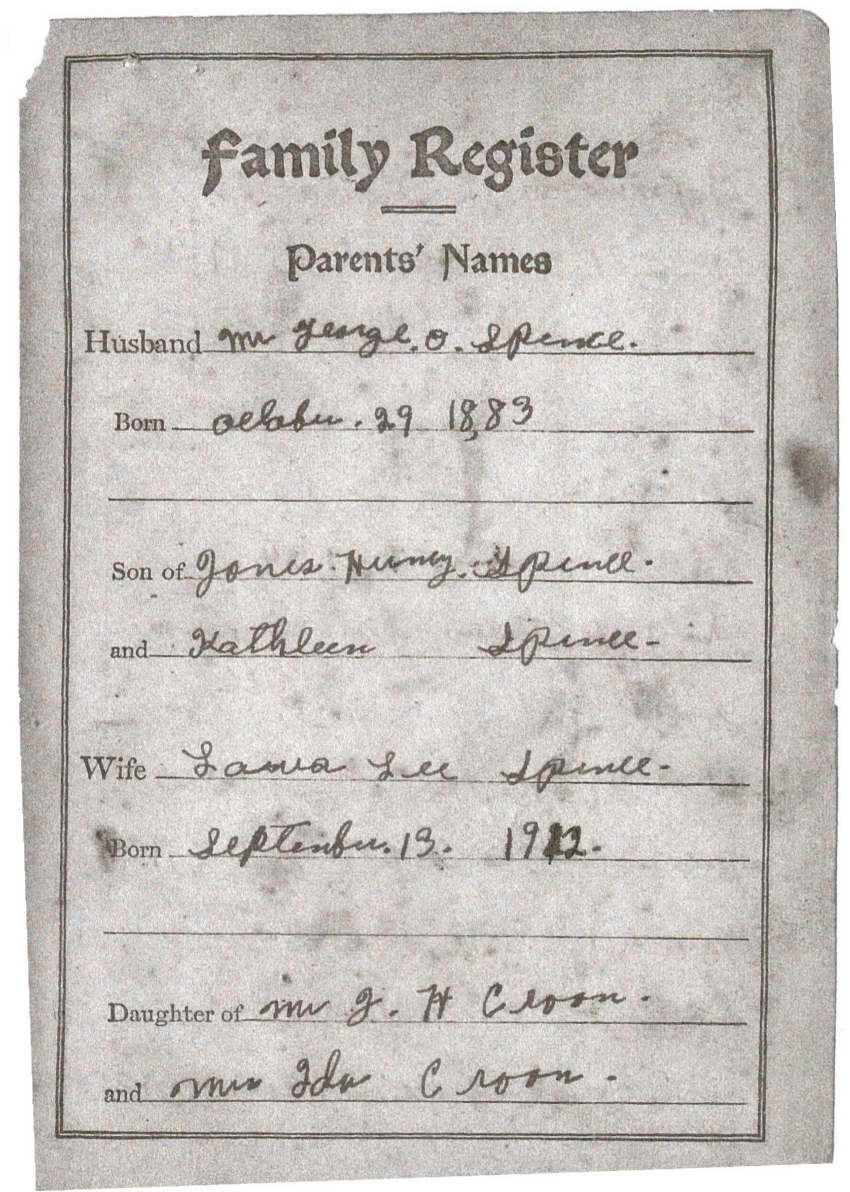 Family Register
Parents' Names
Husband Mr George. O. Spence.
Born October. 29 1883
Son of Jones. Hurney. Spence.
and Kathleen Spence-
Wife Laura Lee Spence-
Born September. 13. 1912.
Daughter of Mr J. H Croon.
and Mrs Ida Croon.